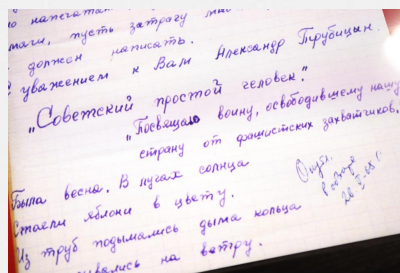 но напечата
маги, пусть затрагу мно
должен написать.
С уважением к Вам Александр Трубицын.
"Советский простой человек."
"Посвящаю воину, освободившему нашу
страну от фашистских захватчиков.
Была весна. В лучах солнца
Стояли яблони в цвету.
Из труб подымались дыма кольца
вались на ветру.
Опубл.